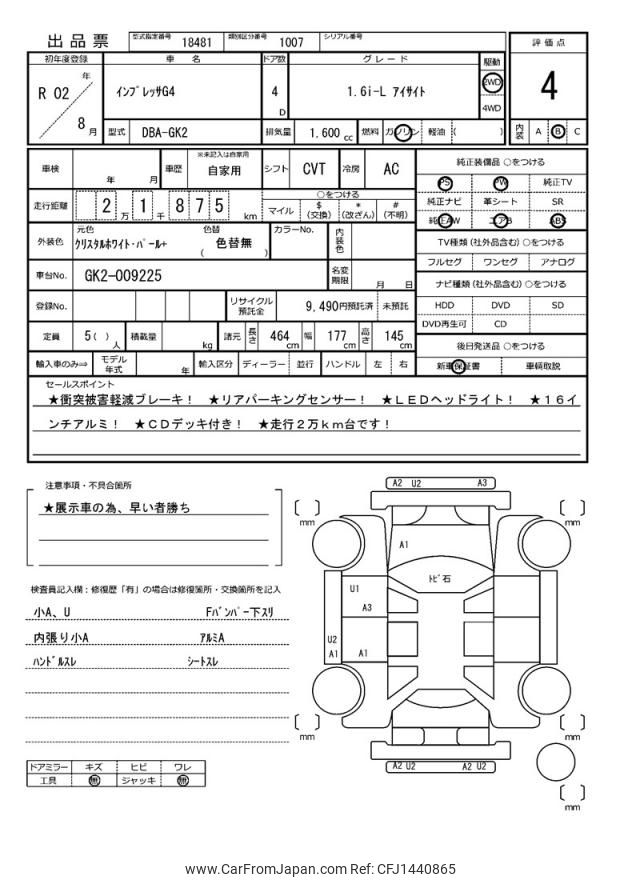 出品票
型式指定番号 18481 類別区分番号 1007 シリアル番号
評価点
4
初年度登録 車名 ドア数 グレード 駆動
R 02 年 8 月
インプレッサG4 4 D 1.6i-L アイサイト 2WD 4WD
型式 DBA-GK2 排気量 1,600 cc 燃料 ガソリン 軽油 ( ) 内装 A B C
車検 年 月 車歴 ※未記入は自家用 自家用 シフト CVT 冷房 AC
走行距離 2 万 1 千 8 7 5 km ○をつける
マイル $ (交換) * (改ざん) # (不明)
外装色 元色 クリスタルホワイト・パール+ 色替 ( 色替無 ) カラーNo. 内装色
車台No. GK2-009225 名変期限 月 日
登録No. リサイクル預託金 9,490円預託済 未預託
定員 5( ) 人 積載量 kg 諸元 長さ 464 cm 幅 177 cm 高さ 145 cm
輸入車のみ⇒ モデル年式 年 輸入区分 ディーラー 並行 ハンドル 左 右
純正装備品 ○をつける
PS PW 純正TV
純正ナビ 革シート SR
純正AW エアB ABS
TV種類(社外品含む)○をつける
フルセグ ワンセグ アナログ
ナビ種類(社外品含む)○をつける
HDD DVD SD
DVD再生可 CD
後日発送品 ○をつける
新車保証書 車輌取説
セールスポイント
★衝突被害軽減ブレーキ! ★リアパーキングセンサー! ★LEDヘッドライト! ★16イ
ンチアルミ! ★CDデッキ付き! ★走行2万km台です!
注意事項・不具合箇所
★展示車の為、早い者勝ち
検査員記入欄:修復歴「有」の場合は修復箇所・交換箇所を記入
小A、U Fバンパー下スリ
内張り小A アルミA
ハンドルスレ シートスレ
ドアミラー キズ ヒビ ワレ
工具 無 ジャッキ 無
A2 U2 A3
mm mm
A1
トビ石
U1
A3
U2
A1 A1
mm mm
A2 U2 A2 U2
mm
www.CarFromJapan.com Ref: CFJ1440865